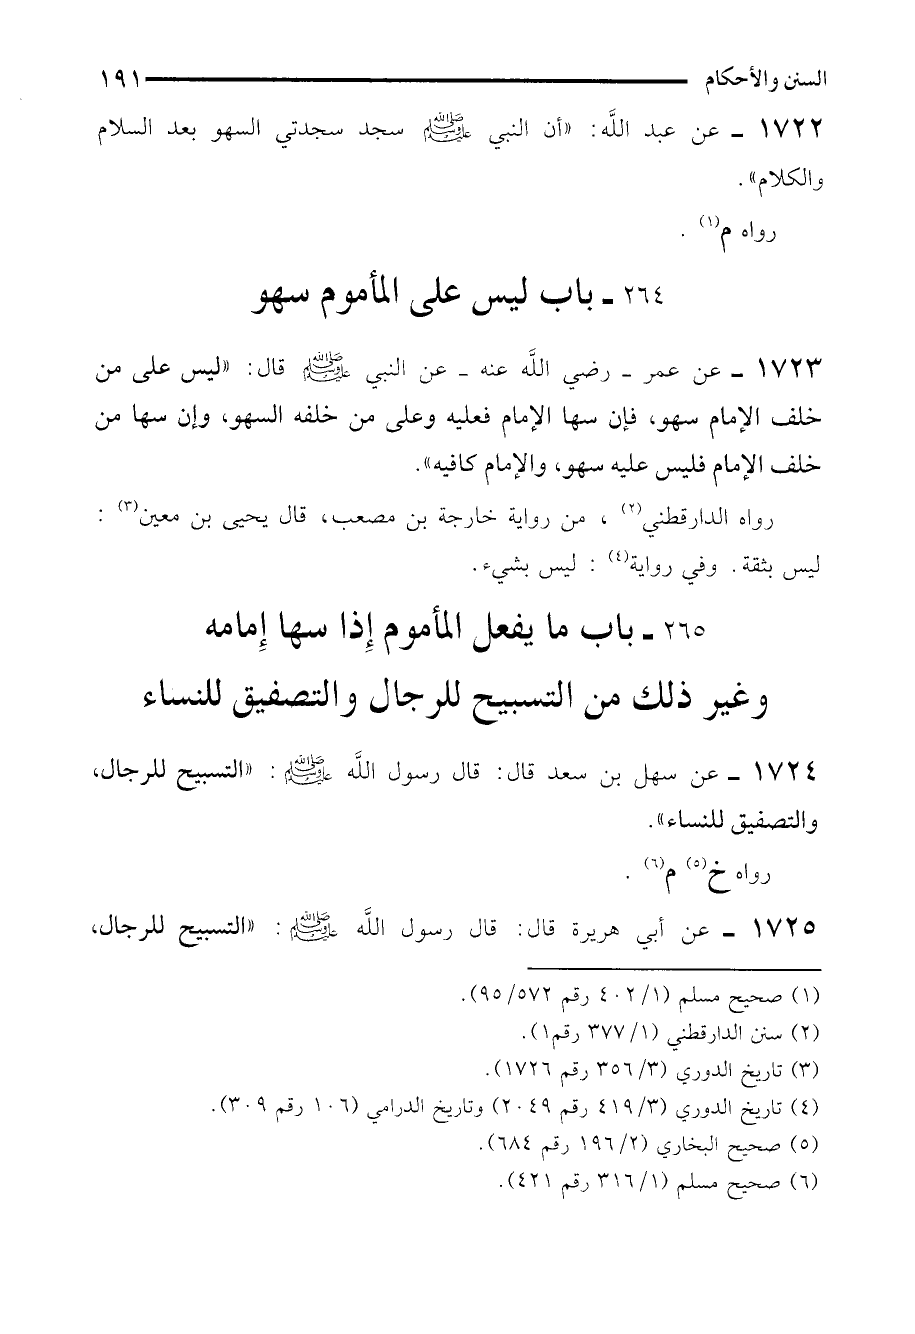 السنن والأحكام ١٩١
١٧٢٢ ـ عن عبد اللَّه: «أن النبي ﷺ سجد سجدتي السهو بعد السلام
والكلام».
رواه م(١) .
٢٦٤ ـ باب ليس على المأموم سهو
١٧٢٣ ـ عن عمر ـ رضي اللَّه عنه ـ عن النبي ﷺ قال: «ليس على من
خلف الإمام سهو، فإن سها الإمام فعليه وعلى من خلفه السهو، وإن سها من
خلف الإمام فليس عليه سهو، والإمام كافيه».
رواه الدارقطني(٢) ، من رواية خارجة بن مصعب، قال يحيى بن معين(٣) :
ليس بثقة. وفي رواية(٤) : ليس بشيء.
٢٦٥ ـ باب ما يفعل المأموم إِذا سها إِمامه
وغير ذلك من التسبيح للرجال والتصفيق للنساء
١٧٢٤ ـ عن سهل بن سعد قال: قال رسول اللَّه ﷺ: «التسبيح للرجال،
والتصفيق للنساء».
رواه خ(٥) م(٦) .
١٧٢٥ ـ عن أبي هريرة قال: قال رسول اللَّه ﷺ: «التسبيح للرجال،
(١) صحيح مسلم (١/ ٤٠٢ رقم ٥٧٢/ ٩٥).
(٢) سنن الدارقطني (١/ ٣٧٧ رقم١).
(٣) تاريخ الدوري (٣/ ٣٥٦ رقم ١٧٢٦).
(٤) تاريخ الدوري (٣/ ٤١٩ رقم ٢٠٤٩) وتاريخ الدرامي (١٠٦ رقم ٣٠٩).
(٥) صحيح البخاري (٢/ ١٩٦ رقم ٦٨٤).
(٦) صحيح مسلم (١/ ٣١٦ رقم ٤٢١).